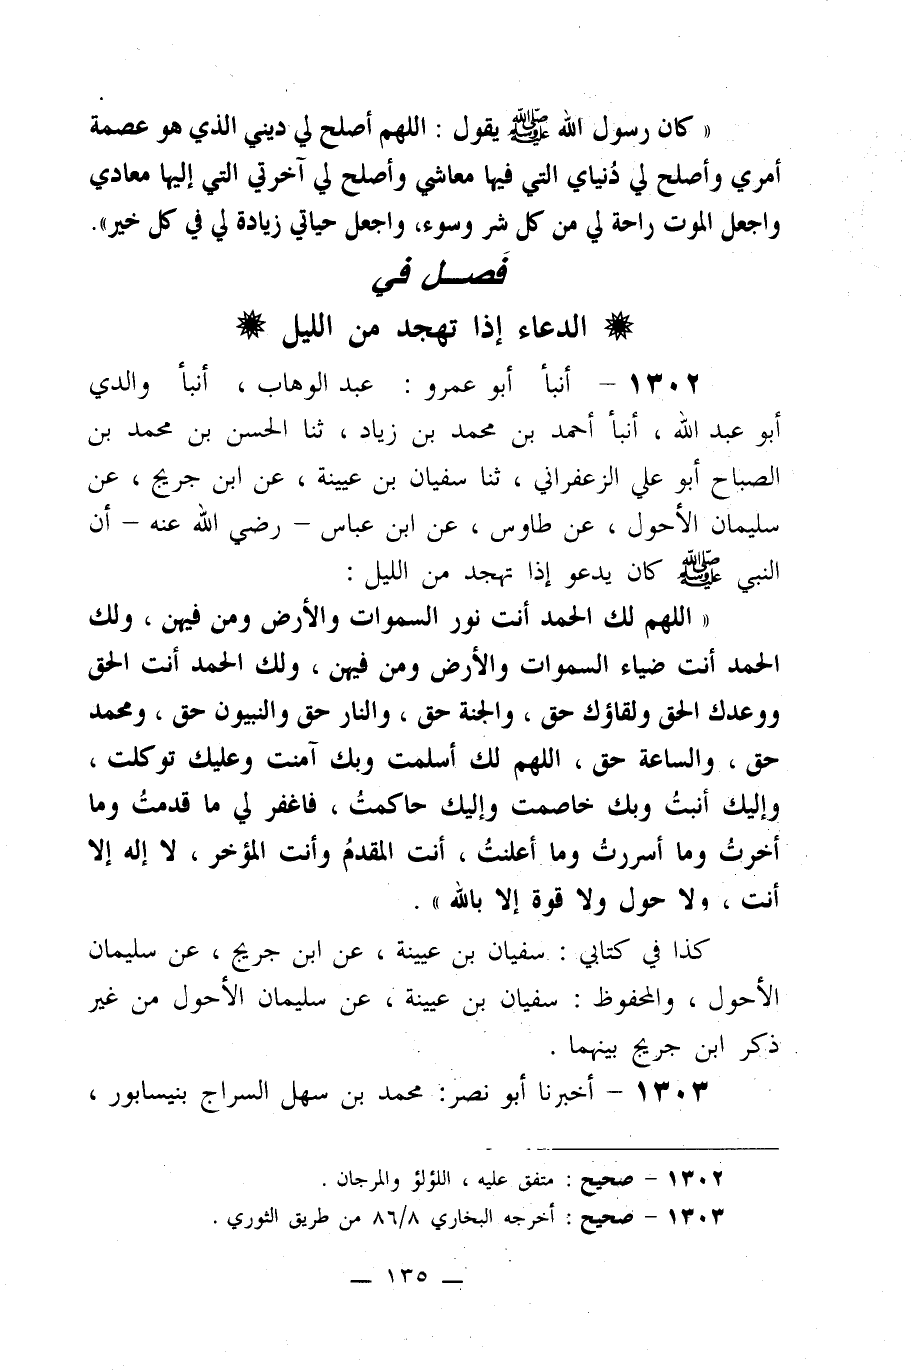 « كان رسول الله ﷺ يقول : اللهم أصلح لي ديني الذي هو عصمة
أمري وأصلح لي دُنياي التي فيها معاشي وأصلح لي آخرتي التي إليها معادي
واجعل الموت راحة لي من كل شر وسوء، واجعل حياتي زيادة لي في كل خير».
فَصـل في
❋ الدعاء إذا تهجد من الليل ❋
١٣٠٢ – أنبأ أبو عمرو : عبد الوهاب ، أنبأ والدي
أبو عبد الله ، أنبأ أحمد بن محمد بن زياد ، ثنا الحسن بن محمد بن
الصباح أبو علي الزعفراني ، ثنا سفيان بن عيينة ، عن ابن جريج ، عن
سليمان الأحول ، عن طاوس ، عن ابن عباس – رضي الله عنه – أن
النبي ﷺ كان يدعو إذا تهجد من الليل :
« اللهم لك الحمد أنت نور السموات والأرض ومن فيهن ، ولك
الحمد أنت ضياء السموات والأرض ومن فيهن ، ولك الحمد أنت الحق
ووعدك الحق ولقاؤك حق ، والجنة حق ، والنار حق والنبيون حق ، ومحمد
حق ، والساعة حق ، اللهم لك أسلمت وبك آمنت وعليك توكلت ،
وإليك أنبتُ وبك خاصمت وإليك حاكمتُ ، فاغفر لي ما قدمتُ وما
أخرتُ وما أسررتُ وما أعلنتُ ، أنت المقدمُ وأنت المؤخر ، لا إله إلا
أنت ، ولا حول ولا قوة إلا بالله » .
كذا في كتابي : سفيان بن عيينة ، عن ابن جريج ، عن سليمان
الأحول ، والمحفوظ : سفيان بن عيينة ، عن سليمان الأحول من غير
ذكر ابن جريج بينهما .
١٣٠٣ – أخبرنا أبو نصر: محمد بن سهل السراج بنيسابور ،
١٣٠٢ – صحيح : متفق عليه ، اللؤلؤ والمرجان .
١٣٠٣ – صحيح : أخرجه البخاري ٨٦/٨ من طريق الثوري .
– ١٣٥ –